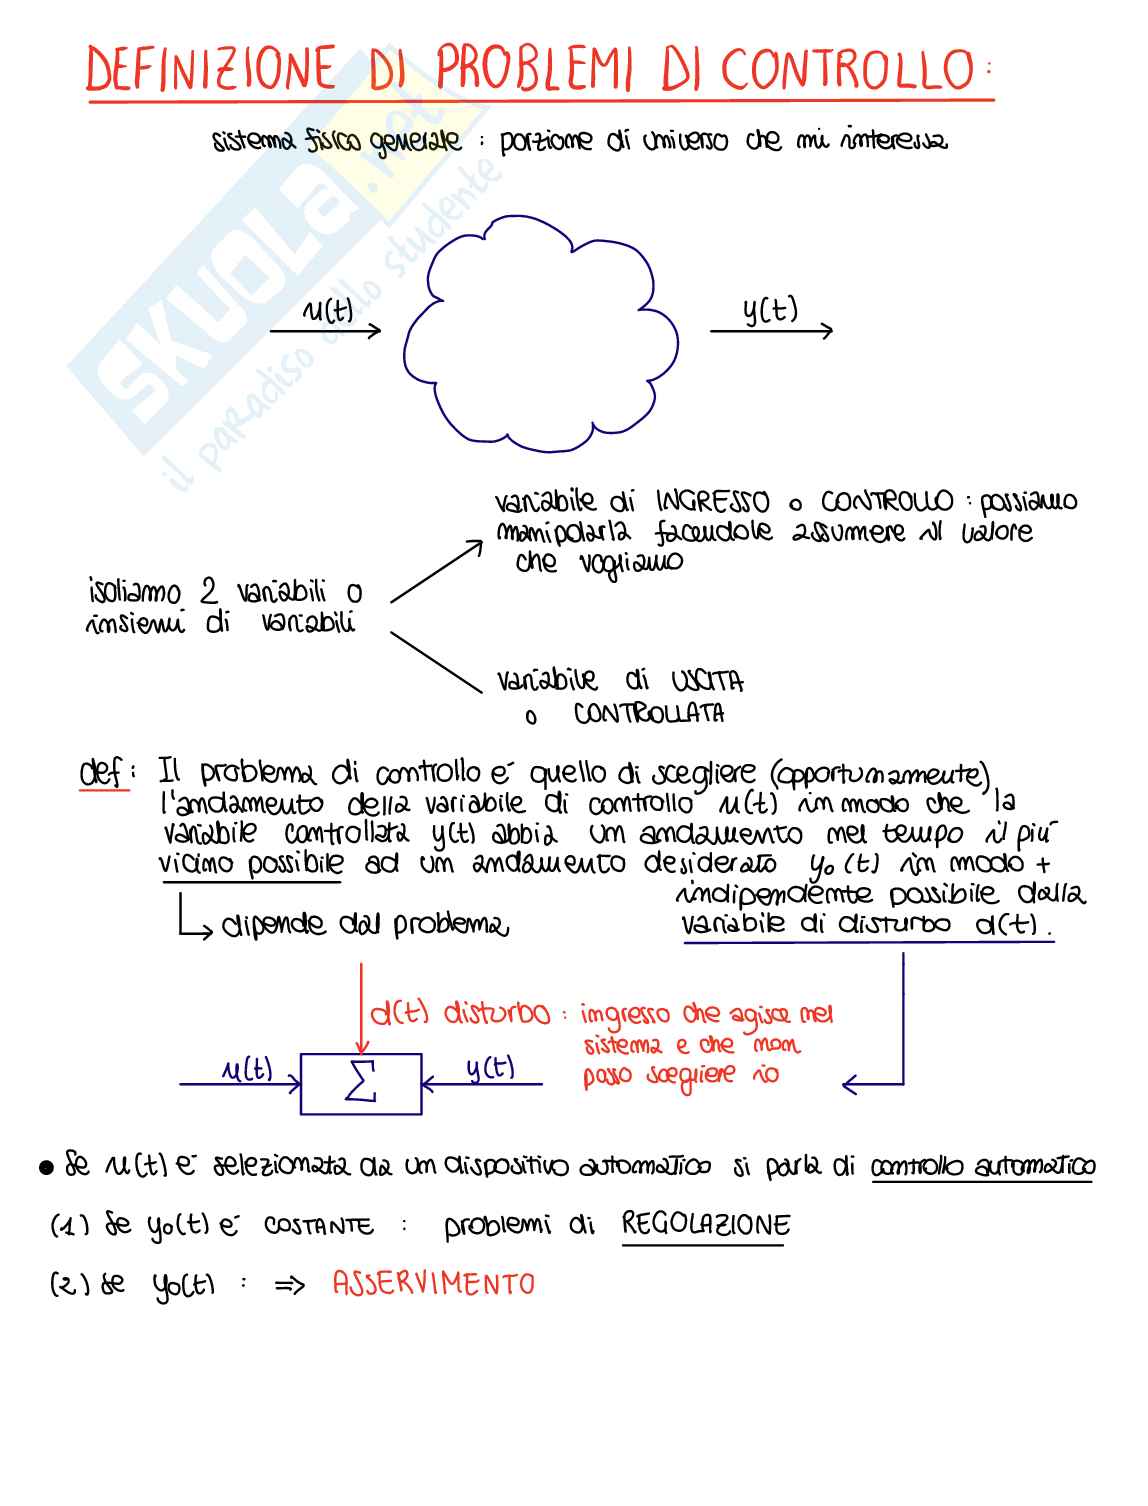 DEFINIZIONE DI PROBLEMI DI CONTROLLO:
sistema fisico generale : porzione di universo che mi interessa
SKUOLA.net
il paradiso dello studente
u(t)
y(t)
variabile di INGRESSO o CONTROLLO : possiamo
manipolarla facendole assumere il valore
che vogliamo
isoliamo 2 variabili o
insiemi di variabili
variabile di USCITA
o CONTROLLATA
def: Il problema di controllo è quello di scegliere (opportunamente)
l'andamento della variabile di controllo u(t) in modo che la
variabile controllata y(t) abbia un andamento nel tempo il più
vicino possibile ad un andamento desiderato y₀(t) in modo +
indipendente possibile dalla
variabile di disturbo d(t).
dipende dal problema
d(t) disturbo : ingresso che agisce nel
sistema e che non
posso scegliere io
u(t)
Σ
y(t)
• Se u(t) è selezionata da un dispositivo automatico si parla di controllo automatico
(1) Se y₀(t) è COSTANTE : problemi di REGOLAZIONE
(2) Se y₀(t) : => ASSERVIMENTO